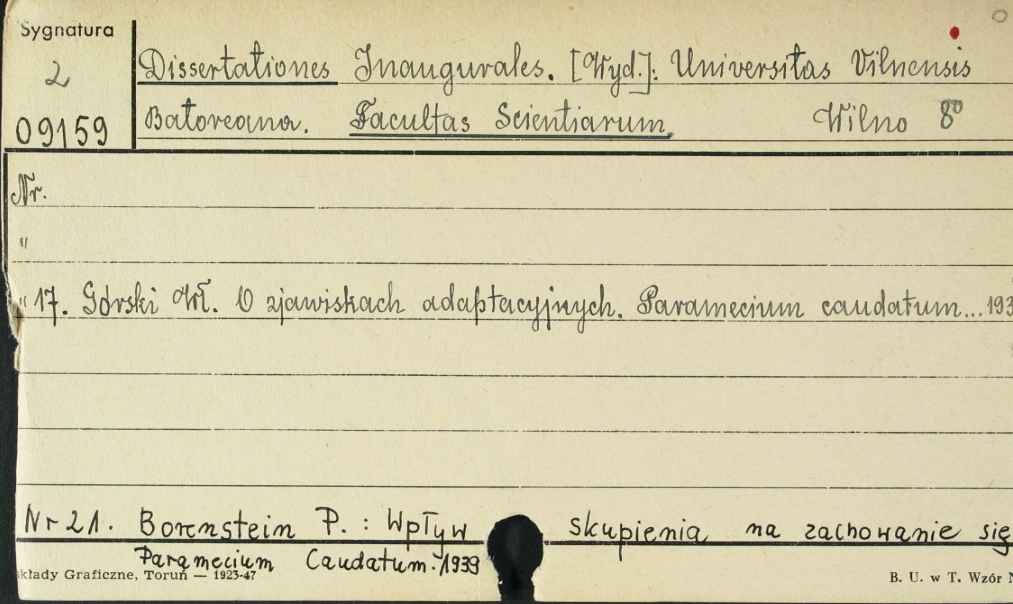 Sygnatura
2
09159
Dissertationes Inaugurales. [Wyd.]: Universitas Vilnensis
Batoreana. Facultas Scientiarum. Wilno 8°
Nr.
"
" 17. Górski Wł. O zjawiskach adaptacyjnych. Paramecium caudatum... 193
Nr 21. Borenstein P. : Wpływ skupienia na zachowanie się
Paramecium Caudatum. 1939
kłady Graficzne, Toruń — 1923-47
B. U. w T. Wzór N